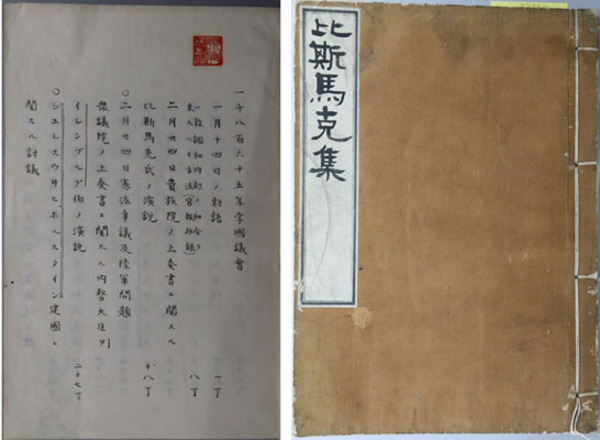 一千八百六十五年孛國議會
一月十四日ノ勅語 一丁
二月廿四日貴族院ノ上奏書ニ関スル
比斯馬克氏ノ演説 十八丁
○二月廿四日憲法争議及陸軍問題
衆議院ノ上奏書ニ関スル内務大臣
イレンブルグ伯ノ演説 二十七丁
○シユレスウヰヒホルスタイン建國ニ
関スル討議
比斯馬克集